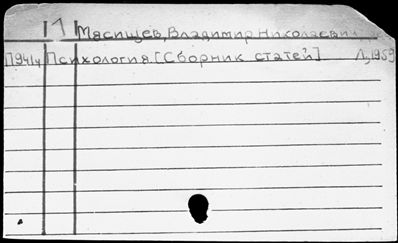 1 Мясищев, Владимир Николаевич.
П941ч Психология. [Сборник статей] Л, 1959